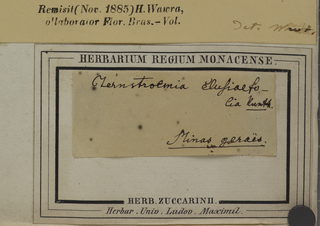 Remisit (Nov. 1885) H. Wawra,
ollaborator Flor. Bras. – Vol.
HERBARIUM REGIUM MONACENSE.
Ternstroemia clusiaefo-
lia Kunth.
Minas geraës.
HERB. ZUCCARINII.
Herbar. Univ. Ludov. Maximil.